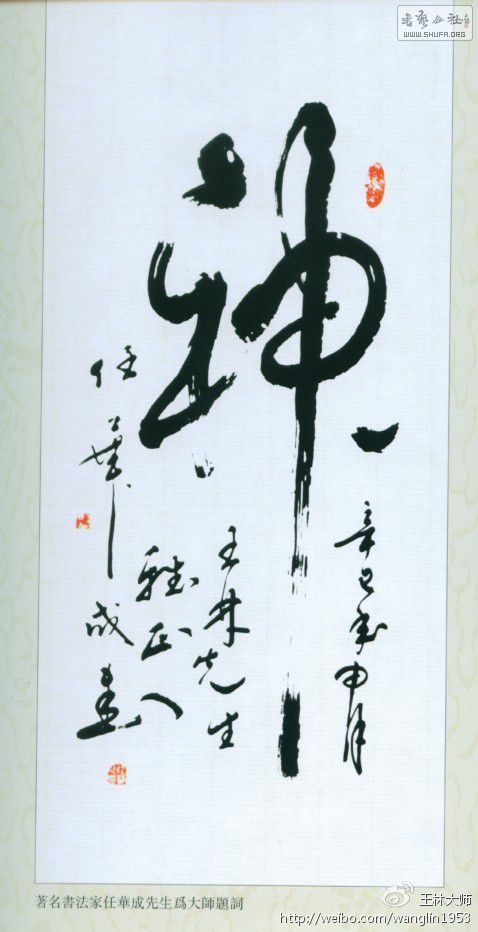 書藝公社
WWW.SHUFA.ORG
神
辛巳年申月
王林先生
雅正
任華成書
著名書法家任華成先生爲大師題詞
王林大师
http://weibo.com/wanglin1953